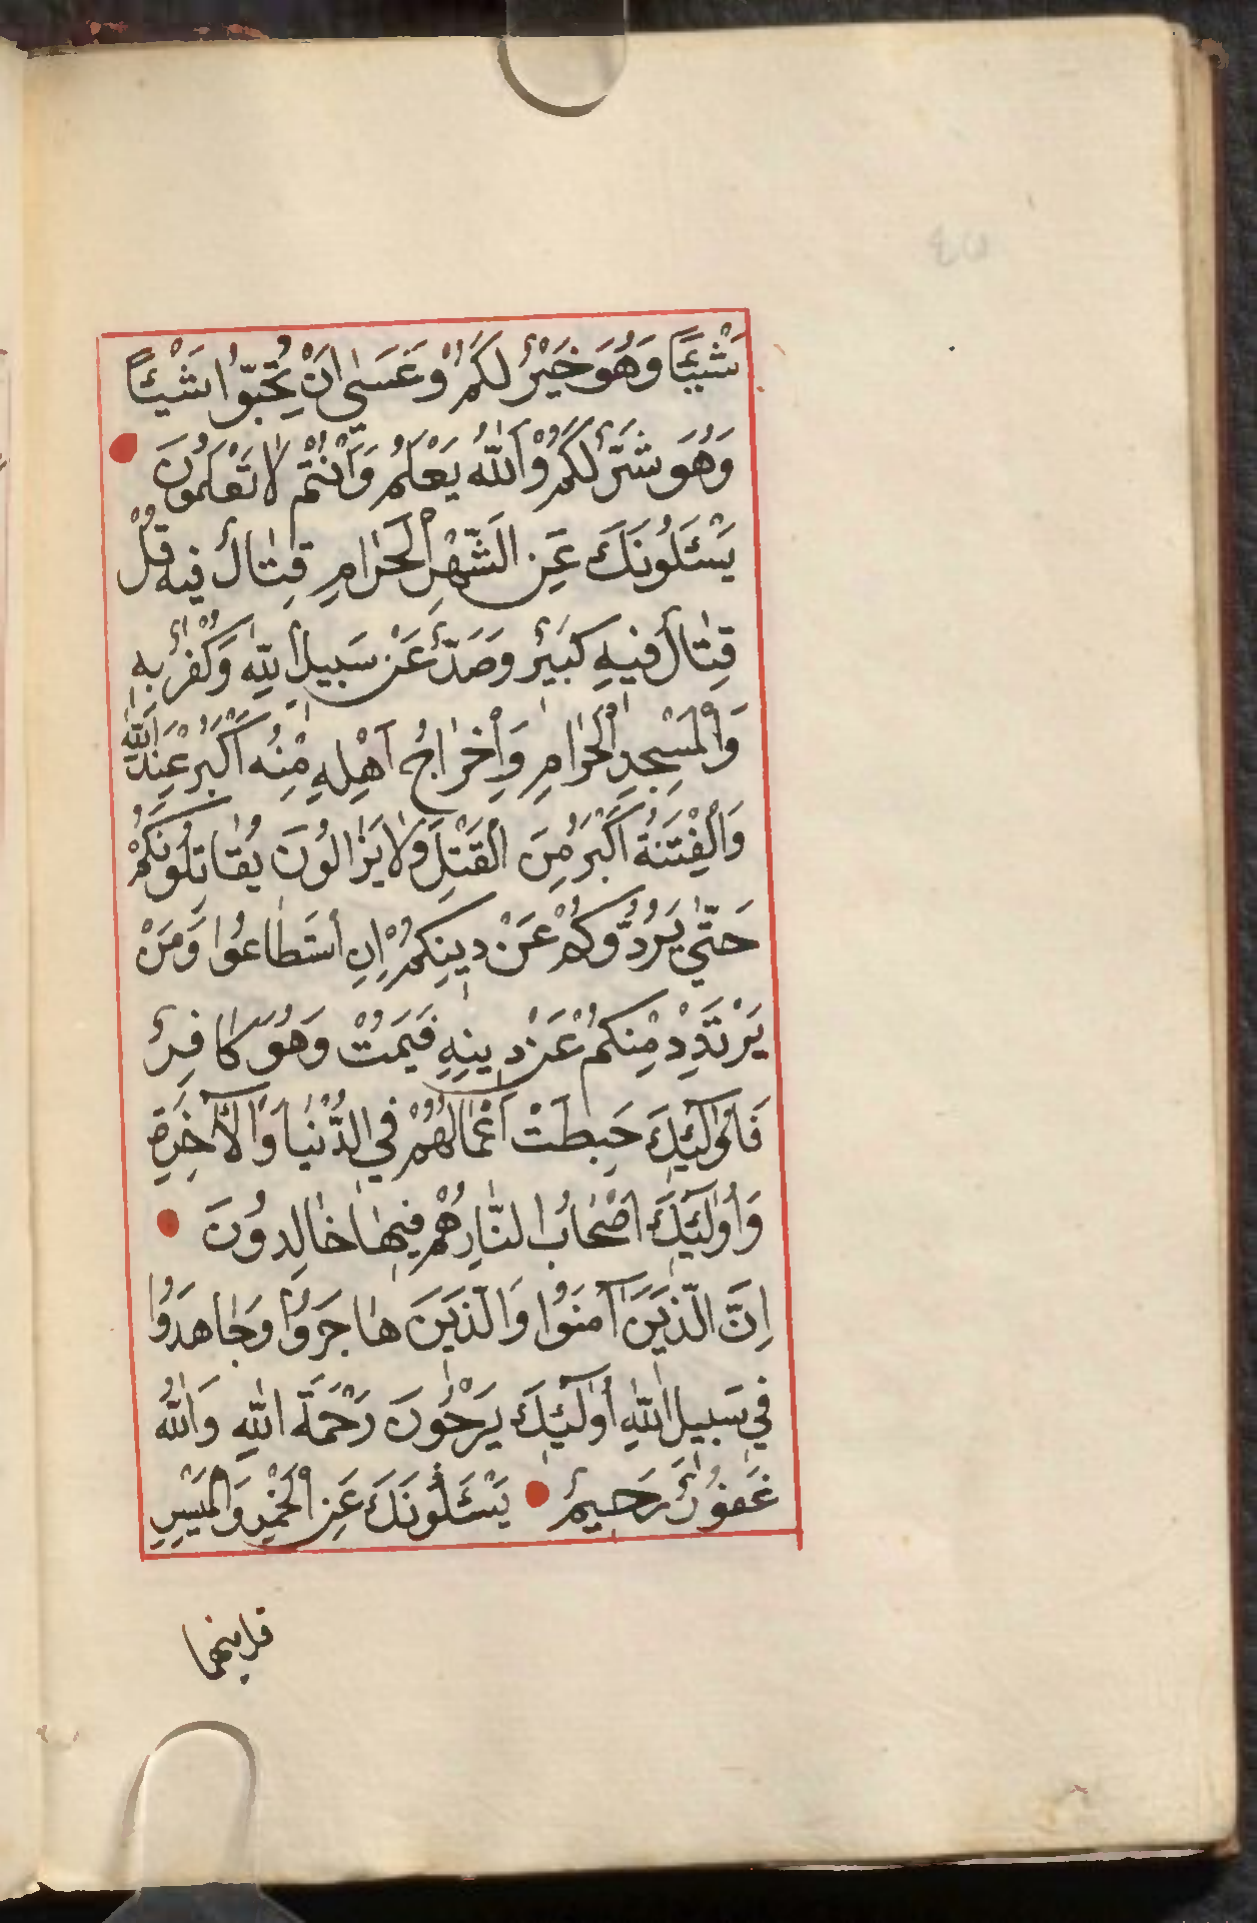 شَيْـًٔا وَهُوَ خَيْرٌ لَكُمْ وَعَسٰى اَنْ تُحِبُّوا شَيْـًٔا
وَهُوَ شَرٌّ لَكُمْ وَاَللّٰهُ يَعْلَمُ وَاَنْتُمْ لَا تَعْلَمُونَ
يَسْئَلُونَكَ عَنِ الَشَّهْرِ الْحَرٰامِ قِتٰالٌ فِيهِ قُلْ
قِتٰالٌ فِيهِ كَبِيرٌ وَصَدٌّ عَنْ سَبِيلِ اللّٰهِ وَكُفْرٌ بِهِ
وَالْمَسْجِدِ الْحَرٰامِ وَاِخْرٰاجُ اَهْلِهِ مِنْهُ اَكْبَرُ عِنْدَ اَللّٰهِ
وَالْفِتْنَةُ اَكْبَرُ مِنَ الْقَتْلِ وَلٰا يَزٰالُونَ يُقٰاتِلُونَكُمْ
حَتّٰى يَرُدُّوكُمْ عَنْ دِينِكُمْ اِنِ اسْتَطٰاعُوا وَمَنْ
يَرْتَدِدْ مِنْكُمْ عَنْ دِينِهِ فَيَمُتْ وَهُوَ كٰافِرٌ
فَاُولٰٓئِكَ حَبِطَتْ اَعْمٰالُهُمْ فِي الدُّنْيٰا وَالْآخِرَةِ
وَاُولٰٓئِكَ اَصْحٰابُ النّٰارِ هُمْ فِيهٰا خٰالِدُونَ
اِنَّ الَّذِينَ آمَنُوا وَالَّذِينَ هٰاجَرُوا وَجٰاهَدُوا
فِي سَبِيلِ اللّٰهِ اُولٰٓئِكَ يَرْجُونَ رَحْمَةَ اللّٰهِ وَاَللّٰهُ
غَفُورٌ رَحِيمٌ يَسْئَلُونَكَ عَنِ الْخَمْرِ وَالْمَيْسِرِ
قل فيهما